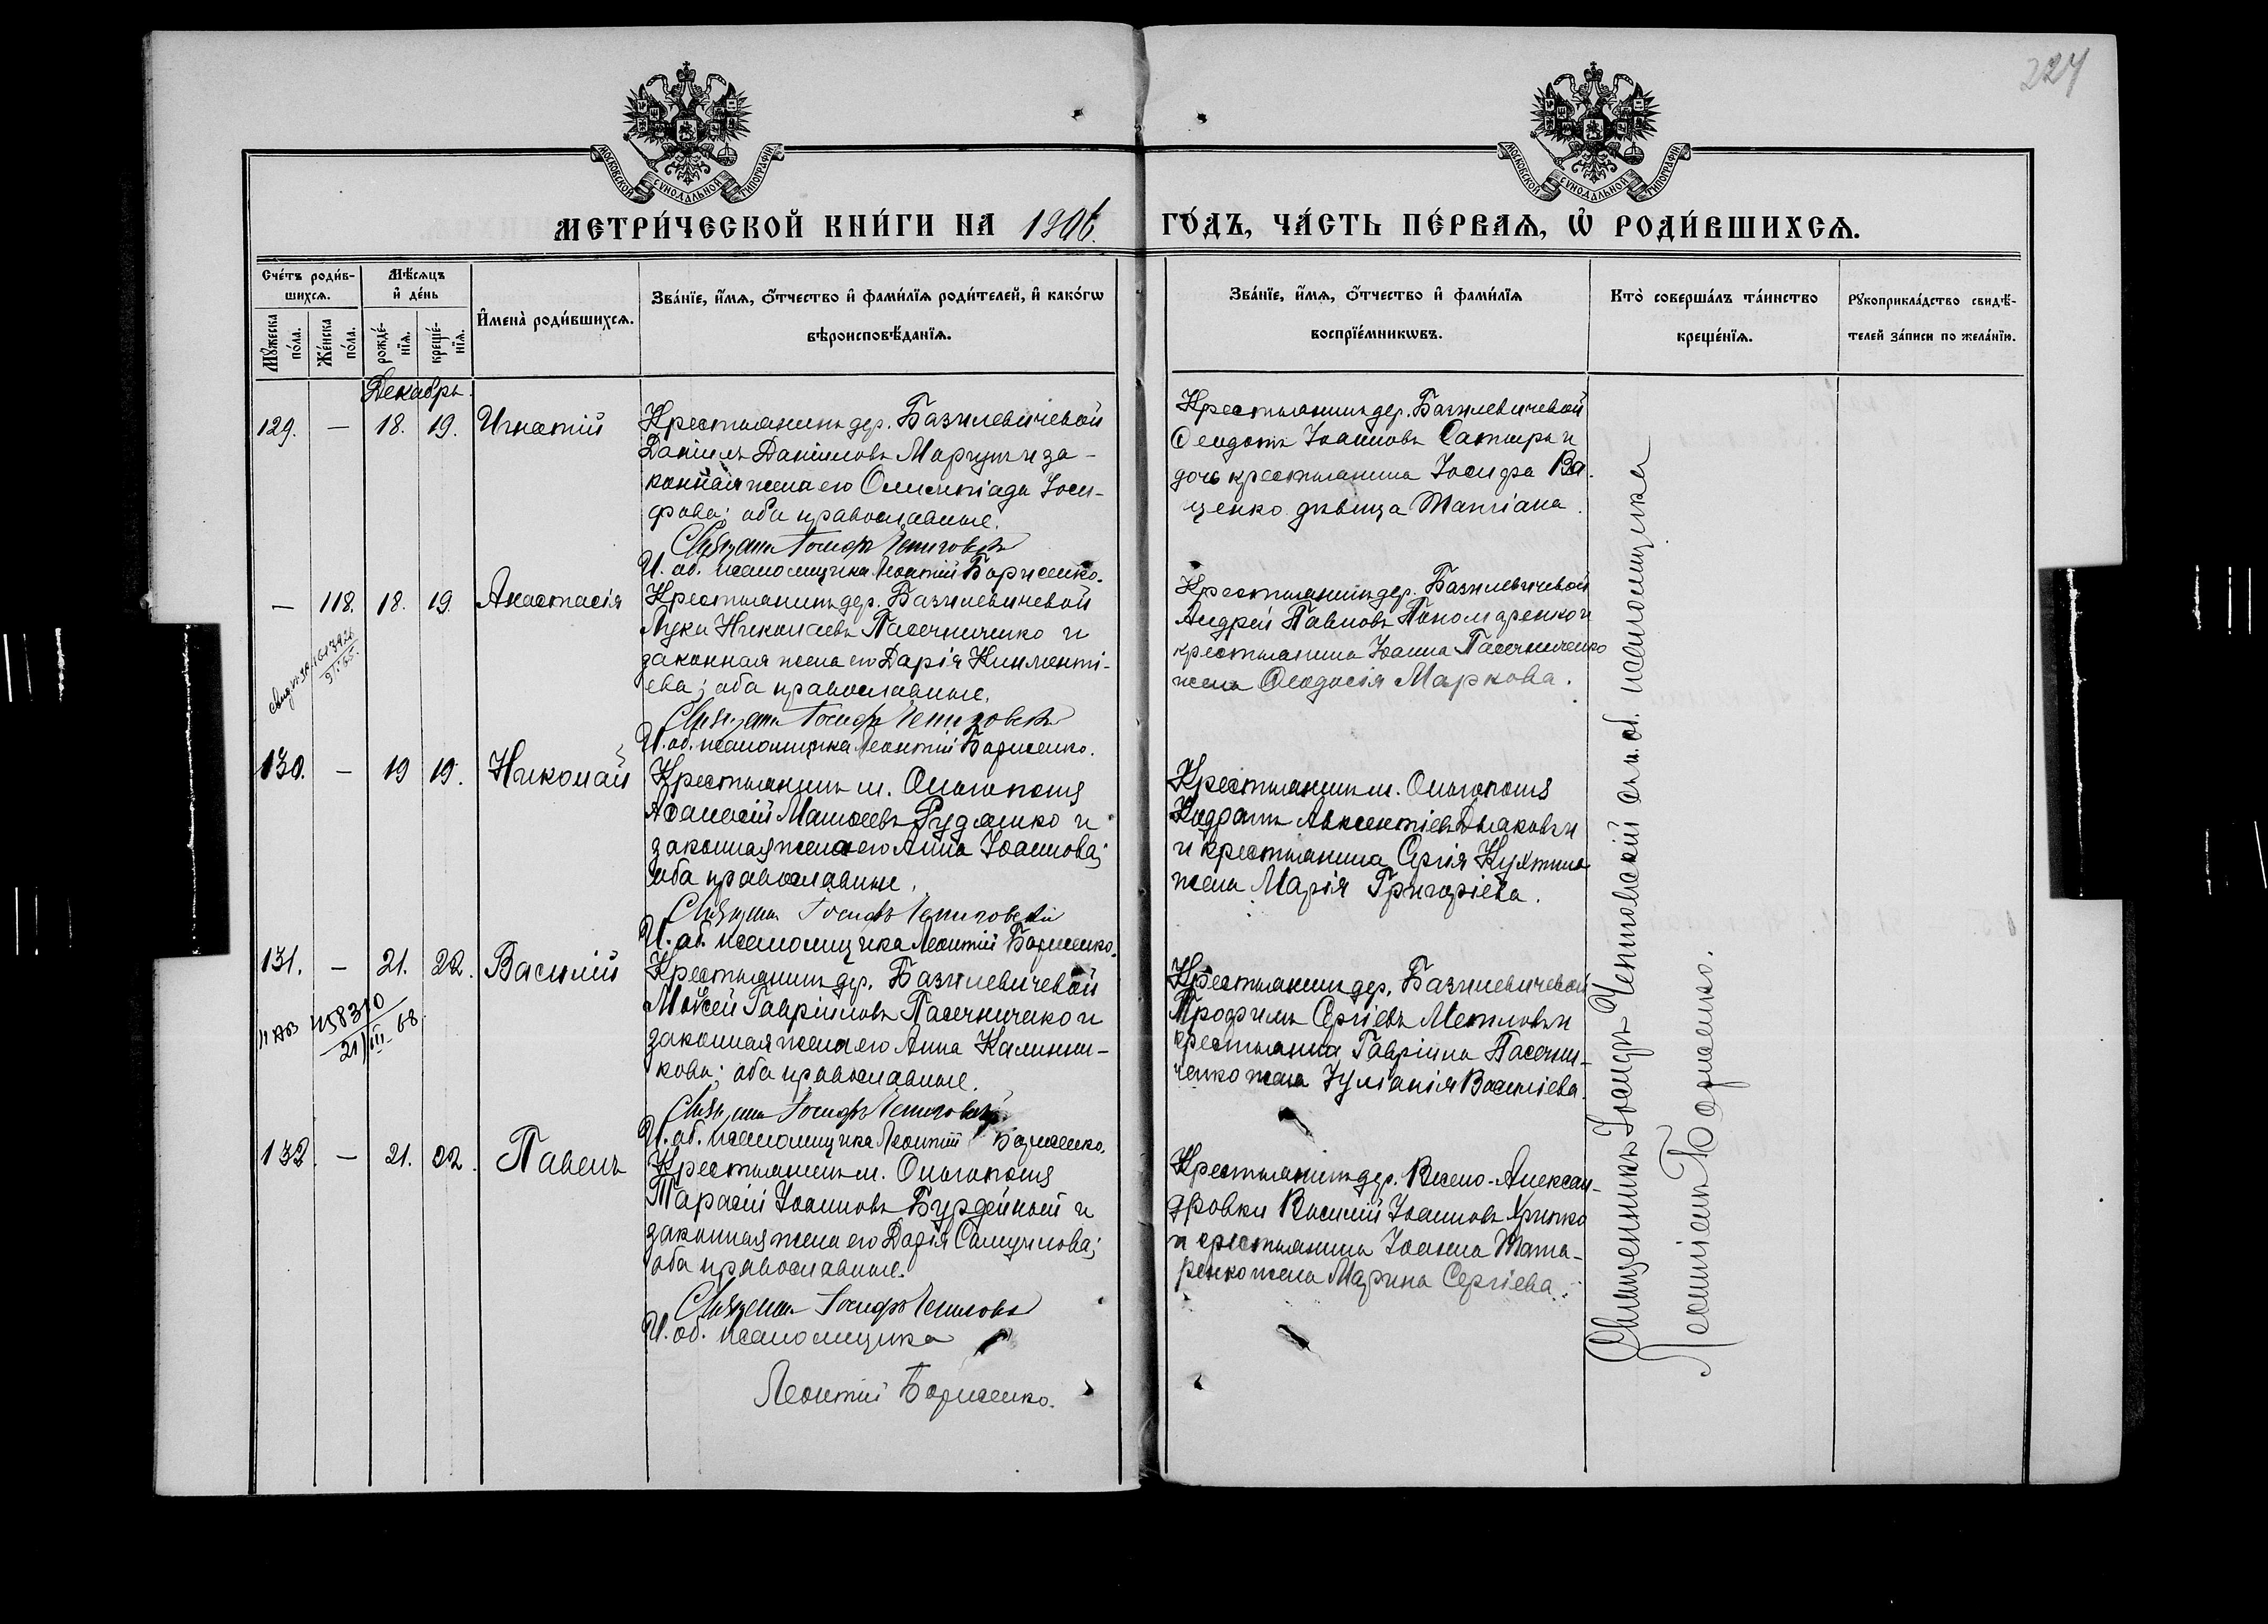 224
МОСКОВСКОЙ СѴНОДАЛЬНОЙ ТИПОГРАФІИ
МОСКОВСКОЙ СѴНОДАЛЬНОЙ ТИПОГРАФІИ
МЕТРИ́ЧЕСКОЙ КНИ́ГИ НА 1906. ГО́ДЪ, ЧА́СТЬ ПЕ́РВАѦ, Ѡ҆ РОДИ́ВШИХСѦ.
Сче́тъ роди́в-
шихсѧ.
Мꙋ́жеска по́ла.
Же́нска по́ла.
Мѣ́сѧцъ
и҆ де́нь
рожде́-
нїѧ.
креще́-
нїѧ.
И҆мена̀ роди́вшихсѧ.
Зва́нїе, и҆́мѧ, ѻ҆́тчество и҆ фами́лїѧ роди́телей, и҆ како́гѡ
вѣроисповѣ́данїѧ.
Зва́нїе, и҆́мѧ, ѻ҆́тчество и҆ фами́лїѧ
воспрїе́мникѡвъ.
Кто̀ соверша́лъ та́инство
креще́нїѧ.
Рꙋкоприкла́дство свидѣ́-
телей за́писи по жела́нїю.
Декабрь.
129. — 18. 19. Игнатій
Крестьянинъ дер. Базилевичевой
Даніилъ Даніиловъ Маргутъ и за-
конная жена его Олимпіада Іоси-
фова; оба православные.
Священ. Іосифъ
И. об. псаломщика Леонтій Борисенко.
Крестьянинъ дер. Базилевичевой
Ѳеодотъ Іоанновъ Сатыръ и
дочь крестьянина Іосифа Ва-
ценко дѣвица Татіана.
— 118. 18. 19. Анастасія
Крестьянинъ дер. Базилевичевой
Лука Николаевъ Пасечниченко и
законная жена его Дарія Клименті-
ева; оба православные.
Священ. Іосифъ
И. об. псаломщика Леонтій Борисенко.
Крестьянинъ дер. Базилевичевой
Андрей Павловъ Пономаренко и
крестьянина Іоанна Пасечниченко
жена Ѳеодосія Маркова.
130. — 19 19. Николай
Крестьянинъ м. Ольгополя
Аѳанасій Моисеевъ Рудянко и
законная жена его Анна Іоаннова;
оба православные.
Священ. Іосифъ
И. об. псаломщика Леонтій Борисенко.
Крестьянинъ м. Ольгополя
Кодратъ Авксентіевъ Дьяковъ и
и крестьянина Сергія
жена Марія Григоріева.
131. — 21. 22. Василій
458310
21/III 68
Крестьянинъ дер. Базилевичевой
Моѵсей Гавріиловъ Пасечниченко и
законная жена его Анна Калинни-
кова; оба православные.
Священ. Іосифъ
И. об. псаломщика Леонтій Борисенко.
Крестьянинъ дер. Базилевичевой
Трофимъ Сергіевъ Метловъ и
крестьянина Гавріила Пасечни-
ченко жена Іуліанія Василіева.
132. — 21. 22. Павелъ
Крестьянинъ м. Ольгополя
Тарасій Іоанновъ Бурдейный и
законная жена его Дарія Самуилова;
оба православные.
Священ. Іосифъ
И. об. псаломщика
Леонтій Борисенко.
Крестьянинъ дер. Ксено-Алексан-
дровки Василій Іоанновъ Хрипко
и крестьянина Іоанна Тата-
ренко жена Марина Сергіева.
Священникъ Іосифъ съ и. об. псаломщика
Леонтіемъ Борисенко.